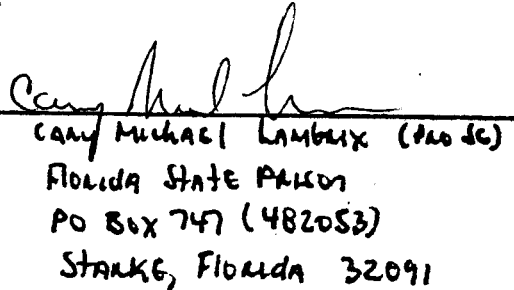 Cary Michael L
CARY MICHAEL LAMBRIX (PRO SE)
FLORIDA STATE PRISON
PO BOX 747 (482053)
STARKE, FLORIDA 32091